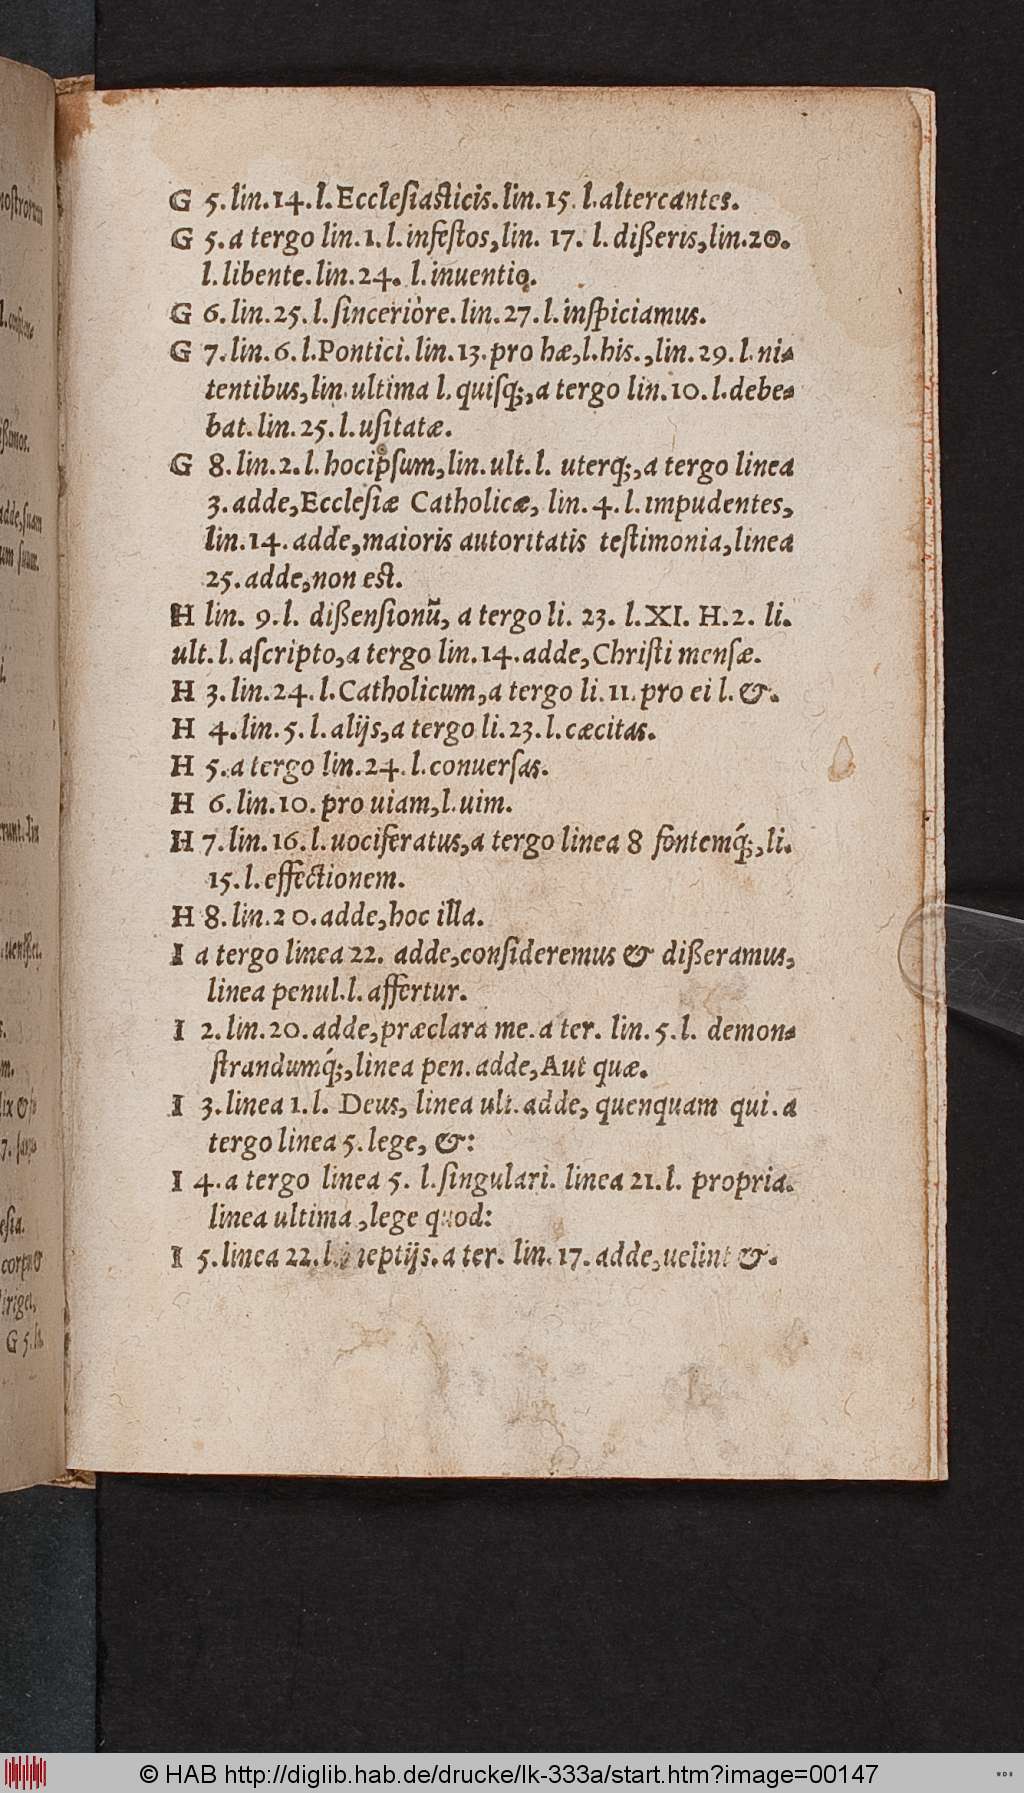 G 5.lin.14.l.Ecclesiasticis.lin.15.l.altercantes.
G 5.a tergo lin.1.l.infestos,lin. 17. l.dißeris,lin.20.
l.libente.lin.24. l.inuentio.
G 6.lin.25.l.sinceriòre.lin.27.l.inspiciamus.
G 7.lin.6.l.Pontici.lin.13.pro hæ,l.his.,lin.29.l.ni-
tentibus,lin.ultima l. quisq;,a tergo lin.10.l.debe-
bat.lin.25.l.usitatæ.
G 8.lin.2.l.hocipsum,lin.ult.l. uterq;,a tergo linea
3.adde,Ecclesiæ Catholicæ, lin.4.l.impudentes,
lin.14.adde,maioris autoritatis testimonia,linea
25.adde,non est.
H lin. 9.l. dißensionũ, a tergo li. 23. l.XI. H.2. li.
ult.l.ascripto,a tergo lin.14.adde,Christi mensæ.
H 3.lin.24.l.Catholicum,a tergo li.11.pro ei l.&.
H 4.lin.5.l.alijs,a tergo li.23.l.cæcitas.
H 5.a tergo lin.24.l.conuersas.
H 6.lin.10.pro uiam,l.uim.
H 7.lin.16.l.uociferatus,a tergo linea 8 fontemq́;,li.
15.l.effectionem.
H 8.lin.20.adde,hoc illa.
I a tergo linea 22. adde,consideremus & dißeramus,
linea penul.l.affertur.
I 2.lin.20.adde,præclara me.a ter. lin.5.l. demon-
strandumq́;,linea pen.adde,Aut quæ.
I 3.linea 1.l. Deus, linea ult.adde, quenquam qui.a
tergo linea 5.lege, &:
I 4.a tergo linea 5. l.singulari. linea 21.l. propria.
linea ultima ,lege quod:
I 5.linea 22.l. a ter. lin.17.adde,uelint &.
nostrorum
adde,suam
um suum.
G 5.
© HAB http://diglib.hab.de/drucke/lk-333a/start.htm?image=00147